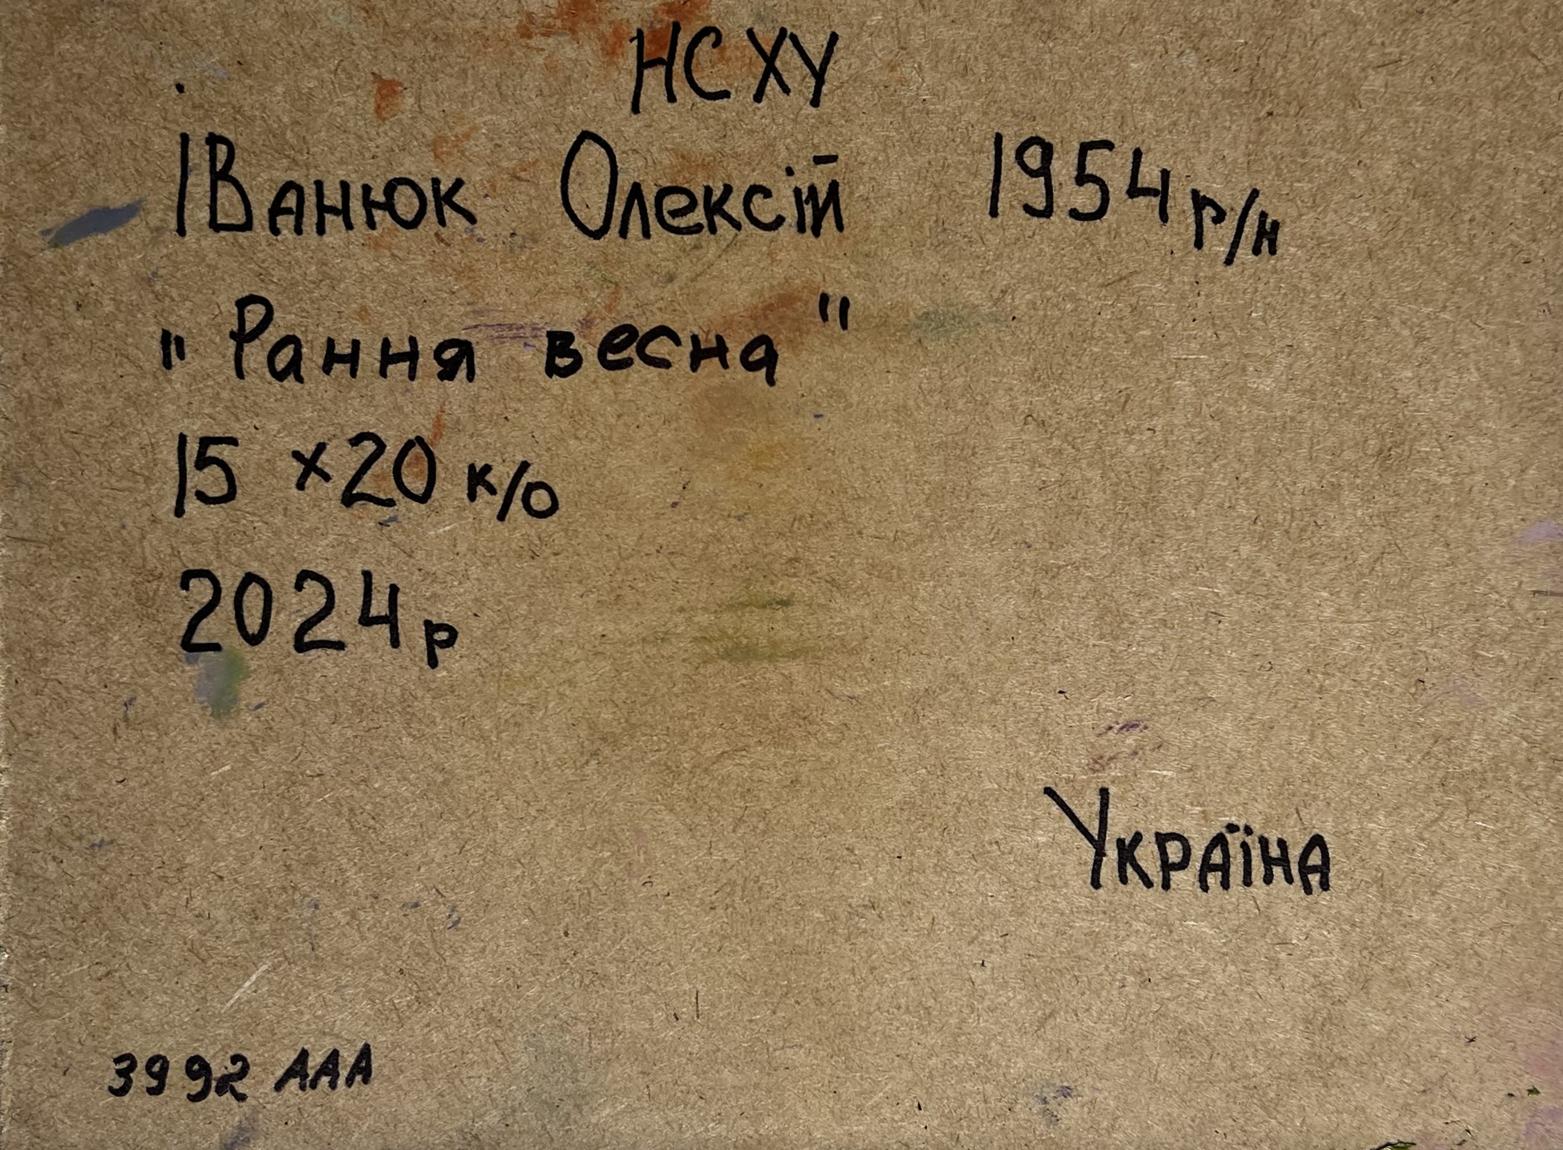 НСХУ
Іванюк Олексій 1954 р/н
"Рання весна"
15 x 20 к/о
2024 р
Україна
3992 ААА